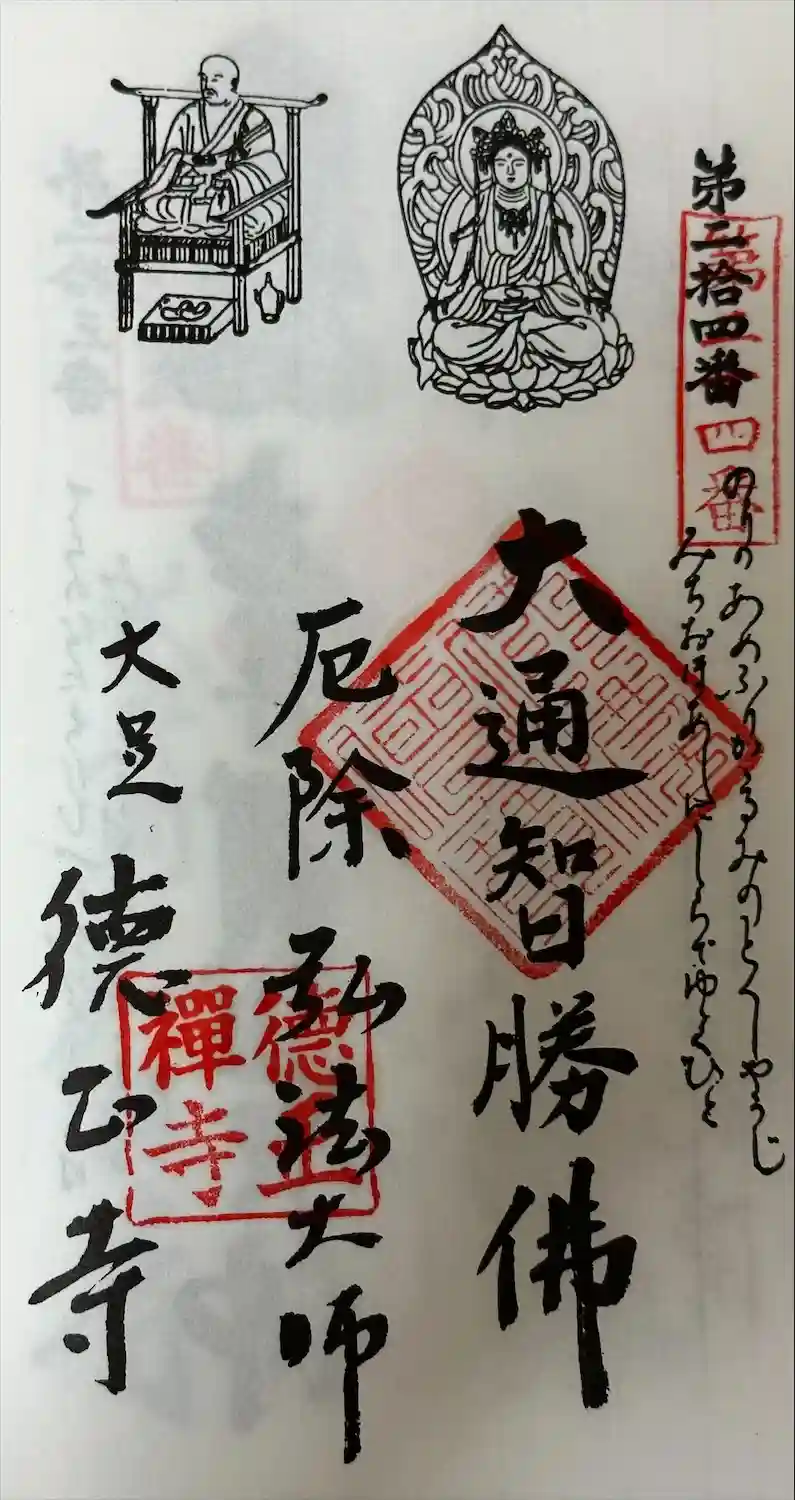 第二拾四番
第二十四番
のりのあめふりかゝるみのとくしやうじ
みちおほあしにしらでゆくひと
大通智勝佛
厄除弘法大師
大足
德正寺
德正
禪寺